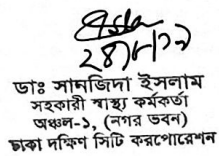 ২৪/৮/২১
ডাঃ সানজিদা ইসলাম
সহকারী স্বাস্থ্য কর্মকর্তা
অঞ্চল-১, (নগর ভবন)
ঢাকা দক্ষিণ সিটি করপোরেশন